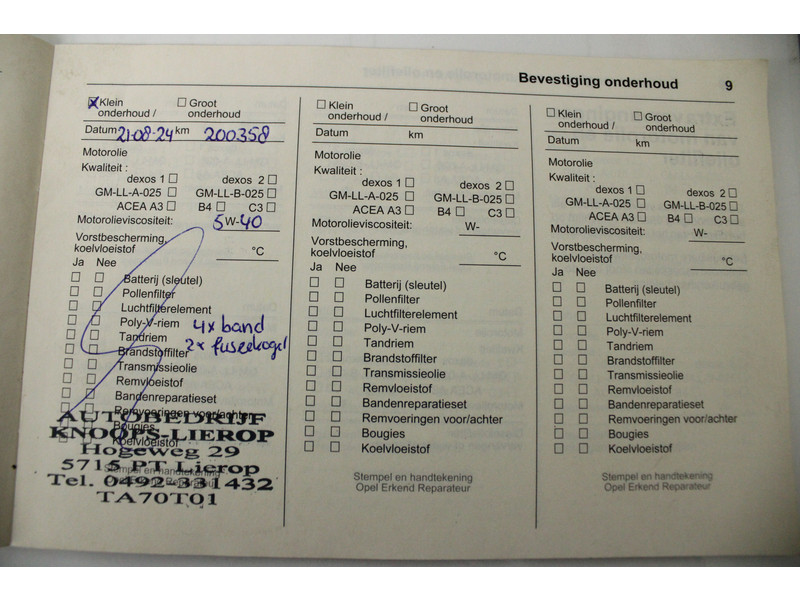 Bevestiging onderhoud 9
☒ Klein onderhoud / ☐ Groot onderhoud
Datum 21-08-24 km 200358
Motorolie
Kwaliteit :
dexos 1 ☐ dexos 2 ☐
GM-LL-A-025 ☐ GM-LL-B-025 ☐
ACEA A3 ☐ B4 ☐ C3 ☐
Motorolieviscositeit: 5W-40
Vorstbescherming,
koelvloeistof °C
Ja Nee
☐ ☐ Batterij (sleutel)
☐ ☐ Pollenfilter
☐ ☐ Luchtfilterelement
☐ ☐ Poly-V-riem 4x band
☐ ☐ Tandriem 2x fuseekogel
☐ ☐ Brandstoffilter
☐ ☐ Transmissieolie
☐ ☐ Remvloeistof
☐ ☐ Bandenreparatieset
☐ ☐ Remvoeringen voor/achter
☐ ☐ Bougies
☐ ☐ Koelvloeistof
Stempel en handtekening
Opel Erkend Reparateur
AUTOBEDRIJF
KNOOPS-LIEROP
Hogeweg 29
5715 PT Lierop
Tel. 0492-331432
TA70T01
☐ Klein onderhoud / ☐ Groot onderhoud
Datum km
Motorolie
Kwaliteit :
dexos 1 ☐ dexos 2 ☐
GM-LL-A-025 ☐ GM-LL-B-025 ☐
ACEA A3 ☐ B4 ☐ C3 ☐
Motorolieviscositeit: W-
Vorstbescherming,
koelvloeistof °C
Ja Nee
☐ ☐ Batterij (sleutel)
☐ ☐ Pollenfilter
☐ ☐ Luchtfilterelement
☐ ☐ Poly-V-riem
☐ ☐ Tandriem
☐ ☐ Brandstoffilter
☐ ☐ Transmissieolie
☐ ☐ Remvloeistof
☐ ☐ Bandenreparatieset
☐ ☐ Remvoeringen voor/achter
☐ ☐ Bougies
☐ ☐ Koelvloeistof
Stempel en handtekening
Opel Erkend Reparateur
☐ Klein onderhoud / ☐ Groot onderhoud
Datum km
Motorolie
Kwaliteit :
dexos 1 ☐ dexos 2 ☐
GM-LL-A-025 ☐ GM-LL-B-025 ☐
ACEA A3 ☐ B4 ☐ C3 ☐
Motorolieviscositeit: W-
Vorstbescherming,
koelvloeistof °C
Ja Nee
☐ ☐ Batterij (sleutel)
☐ ☐ Pollenfilter
☐ ☐ Luchtfilterelement
☐ ☐ Poly-V-riem
☐ ☐ Tandriem
☐ ☐ Brandstoffilter
☐ ☐ Transmissieolie
☐ ☐ Remvloeistof
☐ ☐ Bandenreparatieset
☐ ☐ Remvoeringen voor/achter
☐ ☐ Bougies
☐ ☐ Koelvloeistof
Stempel en handtekening
Opel Erkend Reparateur